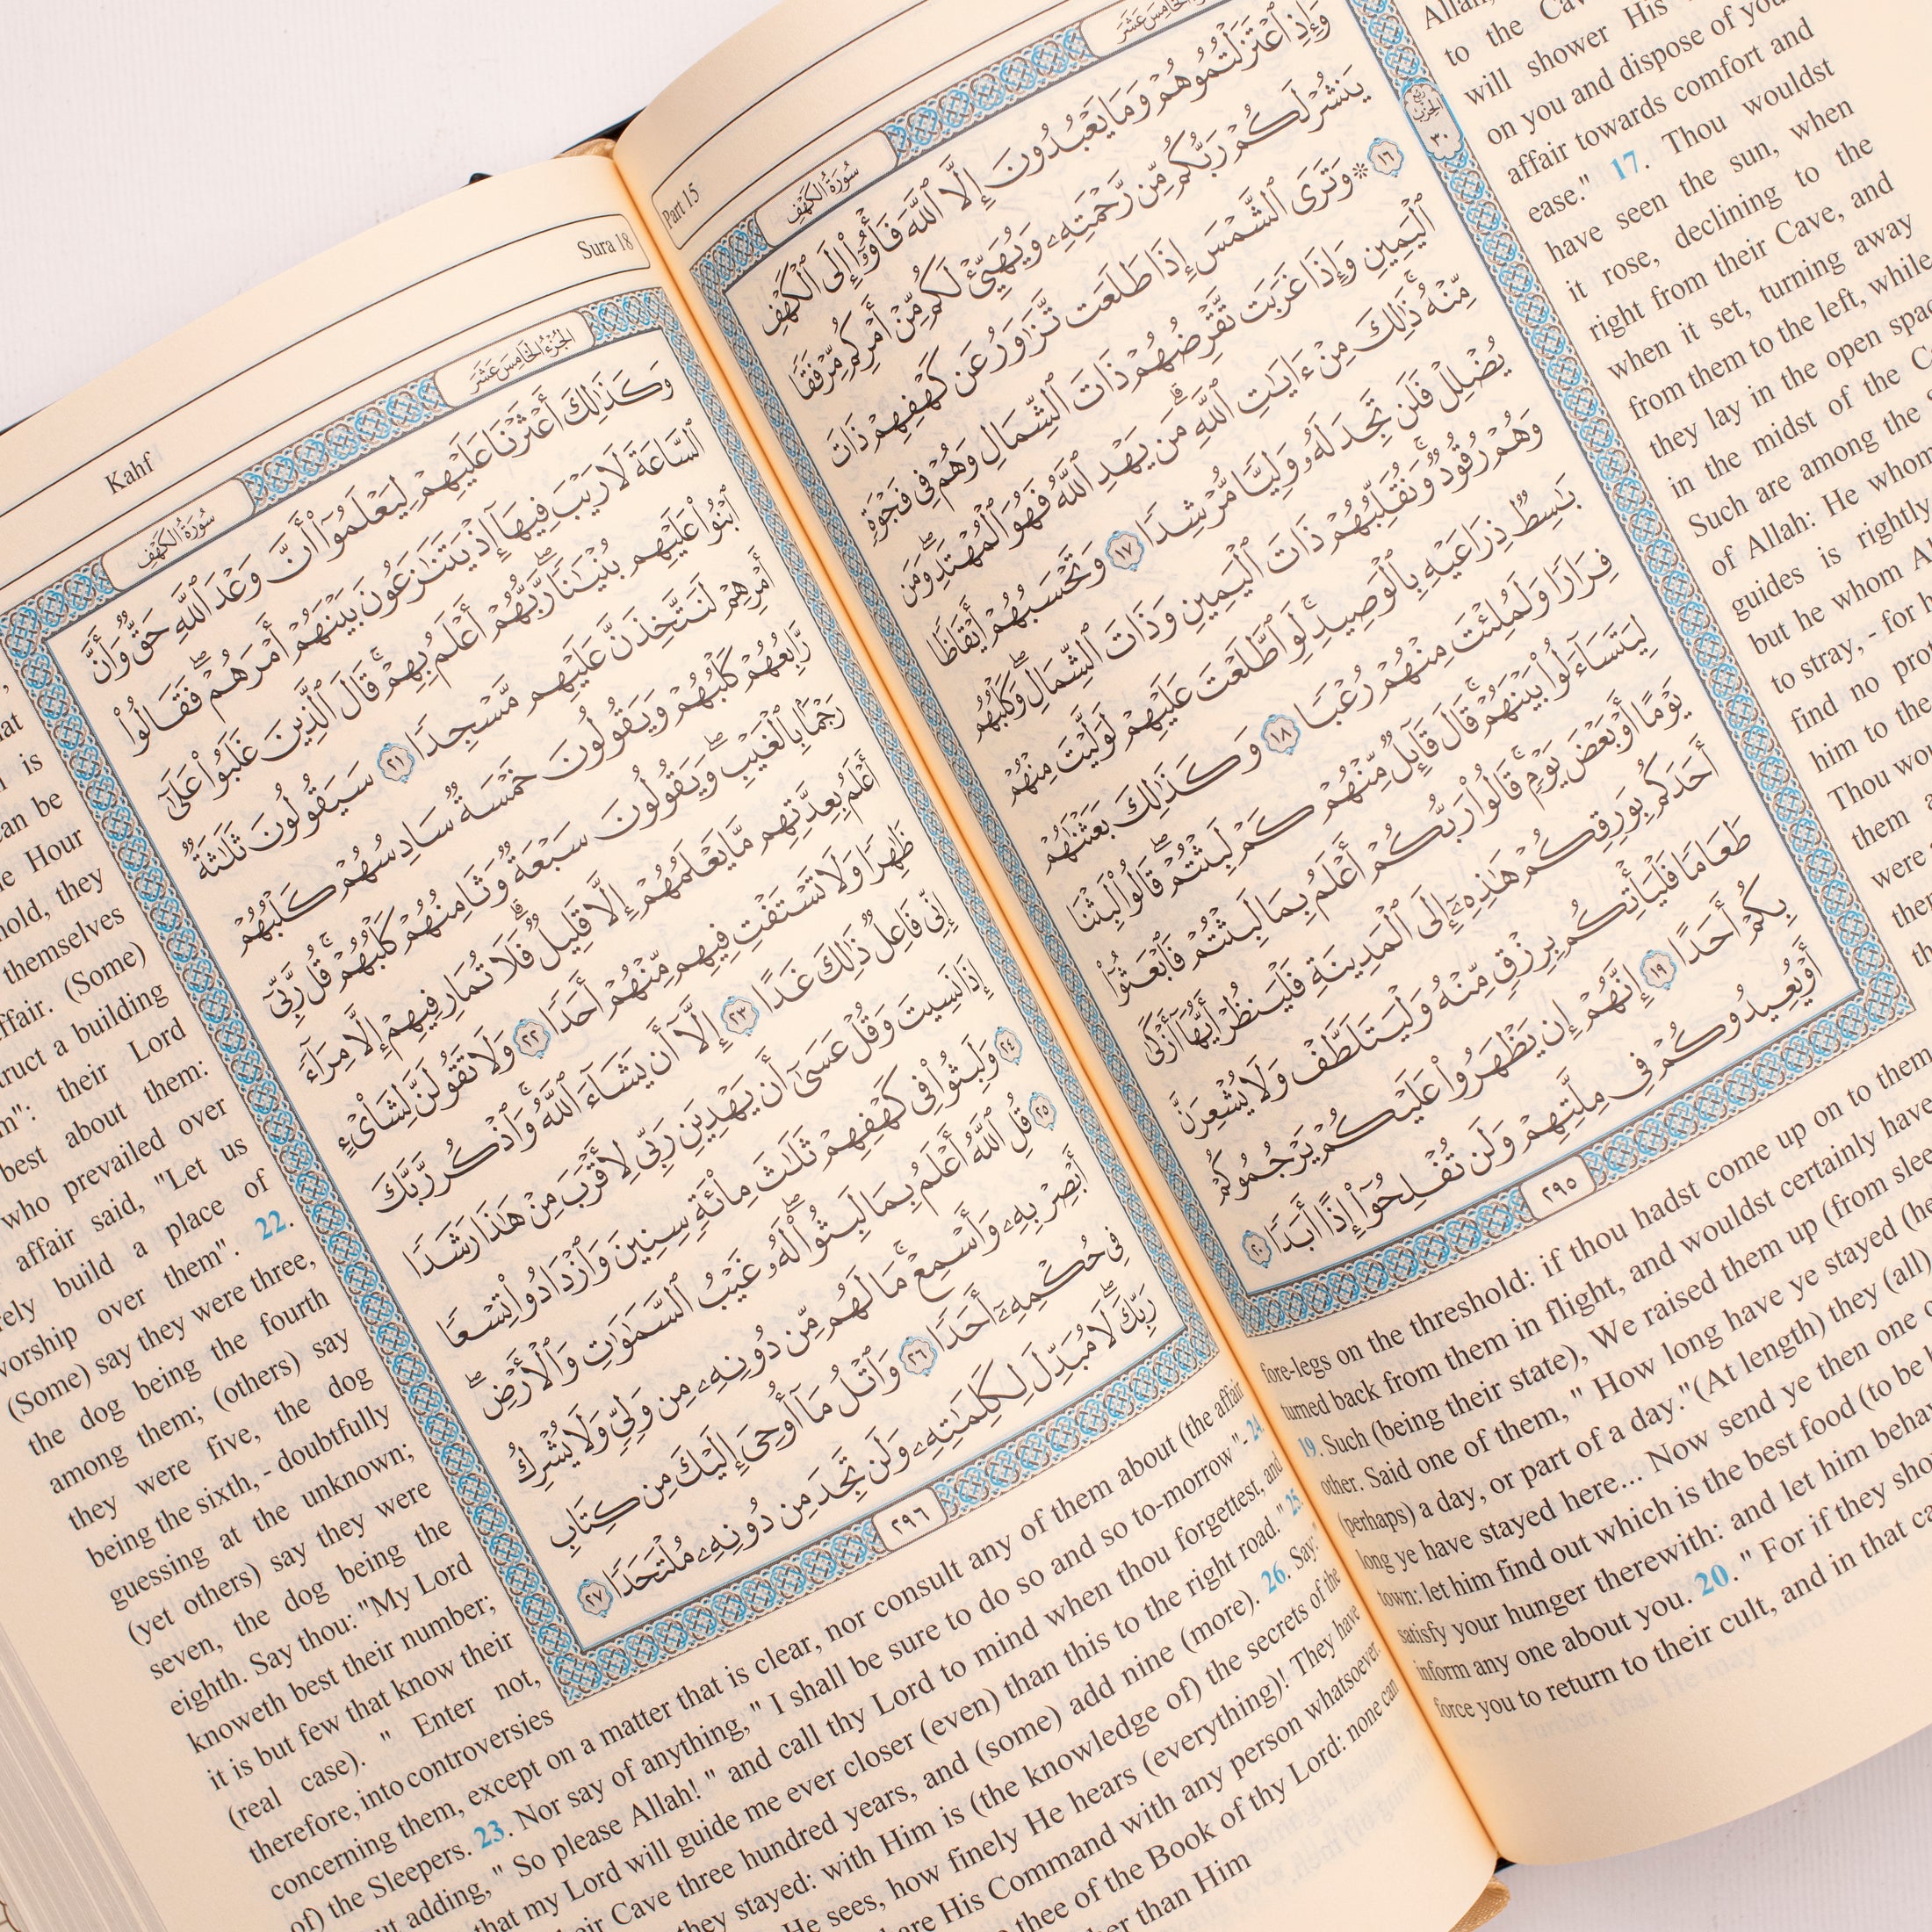 Part 15
سُورَةُ الكَهْفِ
وَإِذِ ٱعْتَزَلْتُمُوهُمْ وَمَا يَعْبُدُونَ إِلَّا ٱللَّهَ فَأْوُۥٓا۟ إِلَى ٱلْكَهْفِ
يَنشُرْ لَكُمْ رَبُّكُم مِّن رَّحْمَتِهِۦ وَيُهَيِّئْ لَكُم مِّنْ أَمْرِكُم مِّرْفَقًا
١٦ ۞ وَتَرَى ٱلشَّمْسَ إِذَا طَلَعَت تَّزَٰوَرُ عَن كَهْفِهِمْ ذَاتَ
ٱلْيَمِينِ وَإِذَا غَرَبَت تَّقْرِضُهُمْ ذَاتَ ٱلشِّمَالِ وَهُمْ فِى فَجْوَةٍ
مِّنْهُ ۚ ذَٰلِكَ مِنْ ءَايَٰتِ ٱللَّهِ ۗ مَن يَهْدِ ٱللَّهُ فَهُوَ ٱلْمُهْتَدِ ۖ وَمَن
يُضْلِلْ فَلَن تَجِدَ لَهُۥ وَلِيًّا مُّرْشِدًا ١٧ وَتَحْسَبُهُمْ أَيْقَاظًا
وَهُمْ رُقُودٌ ۚ وَنُقَلِّبُهُمْ ذَاتَ ٱلْيَمِينِ وَذَاتَ ٱلشِّمَالِ ۖ وَكَلْبُهُم
بَٰسِطٌ ذِرَاعَيْهِ بِٱلْوَصِيدِ ۚ لَوِ ٱطَّلَعْتَ عَلَيْهِمْ لَوَلَّيْتَ مِنْهُمْ
فِرَارًا وَلَمُلِئْتَ مِنْهُمْ رُعْبًا ١٨ وَكَذَٰلِكَ بَعَثْنَٰهُمْ
لِيَتَسَآءَلُوا۟ بَيْنَهُمْ ۚ قَالَ قَآئِلٌ مِّنْهُمْ كَمْ لَبِثْتُمْ ۖ قَالُوا۟ لَبِثْنَا
يَوْمًا أَوْ بَعْضَ يَوْمٍ ۚ قَالُوا۟ رَبُّكُمْ أَعْلَمُ بِمَا لَبِثْتُمْ فَٱبْعَثُوٓا۟
أَحَدَكُم بِوَرِقِكُمْ هَٰذِهِۦٓ إِلَى ٱلْمَدِينَةِ فَلْيَنظُرْ أَيُّهَآ أَزْكَىٰ
طَعَامًا فَلْيَأْتِكُم بِرِزْقٍ مِّنْهُ وَلْيَتَلَطَّفْ وَلَا يُشْعِرَنَّ
بِكُمْ أَحَدًا ١٩ إِنَّهُمْ إِن يَظْهَرُوا۟ عَلَيْكُمْ يَرْجُمُوكُمْ
أَوْ يُعِيدُوكُمْ فِى مِلَّتِهِمْ وَلَن تُفْلِحُوٓا۟ إِذًا أَبَدًا ٢٠
٢٩٥
٣٠
to the
will shower His
on you and dispose of your
affair towards comfort and
ease." 17. Thou wouldst
have seen the sun, when
it rose, declining to the
right from their Cave, and
when it set, turning away
from them to the left, while
they lay in the open space
in the midst of the
Such are among the
of Allah: He whom
guides is rightly
but he whom
to stray, - for
find no
him to the
Thou
them
were
fore-legs on the threshold: if thou hadst come up on to them
turned back from them in flight, and wouldst certainly have
19. Such (being their state), We raised them up (from
other. Said one of them, " How long have ye stayed
(perhaps) a day, or part of a day."(At length) they (all)
long ye have stayed here... Now send ye then one
town: let him find out which is the best food (to be
satisfy your hunger therewith: and let him
inform any one about you. 20. " For if they
force you to return to their cult, and in that
Kahf
Sura 18
الجُزْءُ الخَامِسَ عَشَرَ
سُورَةُ الكَهْفِ
وَكَذَٰلِكَ أَعْثَرْنَا عَلَيْهِمْ لِيَعْلَمُوٓا۟ أَنَّ وَعْدَ ٱللَّهِ حَقٌّ وَأَنَّ
ٱلسَّاعَةَ لَا رَيْبَ فِيهَآ إِذْ يَتَنَٰزَعُونَ بَيْنَهُمْ أَمْرَهُمْ ۖ فَقَالُوا۟
ٱبْنُوا۟ عَلَيْهِم بُنْيَٰنًا ۖ رَّبُّهُمْ أَعْلَمُ بِهِمْ ۚ قَالَ ٱلَّذِينَ غَلَبُوا۟ عَلَىٰٓ
أَمْرِهِمْ لَنَتَّخِذَنَّ عَلَيْهِم مَّسْجِدًا ٢١ سَيَقُولُونَ ثَلَٰثَةٌ
رَّابِعُهُمْ كَلْبُهُمْ وَيَقُولُونَ خَمْسَةٌ سَادِسُهُمْ كَلْبُهُمْ
رَجْمًۢا بِٱلْغَيْبِ ۖ وَيَقُولُونَ سَبْعَةٌ وَثَامِنُهُمْ كَلْبُهُمْ ۚ قُل رَّبِّىٓ
أَعْلَمُ بِعِدَّتِهِم مَّا يَعْلَمُهُمْ إِلَّا قَلِيلٌ ۗ فَلَا تُمَارِ فِيهِمْ إِلَّا مِرَآءً
ظَٰهِرًا وَلَا تَسْتَفْتِ فِيهِم مِّنْهُمْ أَحَدًا ٢٢ وَلَا تَقُولَنَّ لِشَا۟ىْءٍ
إِنِّى فَاعِلٌ ذَٰلِكَ غَدًا ٢٣ إِلَّآ أَن يَشَآءَ ٱللَّهُ ۚ وَٱذْكُر رَّبَّكَ
إِذَا نَسِيتَ وَقُلْ عَسَىٰٓ أَن يَهْدِيَنِ رَبِّى لِأَقْرَبَ مِنْ هَٰذَا رَشَدًا
٢٤ وَلَبِثُوا۟ فِى كَهْفِهِمْ ثَلَٰثَ مِا۟ئَةٍ سِنِينَ وَٱزْدَادُوا۟ تِسْعًا
٢٥ قُلِ ٱللَّهُ أَعْلَمُ بِمَا لَبِثُوا۟ ۖ لَهُۥ غَيْبُ ٱلسَّمَٰوَٰتِ وَٱلْأَرْضِ ۖ
أَبْصِرْ بِهِۦ وَأَسْمِعْ ۚ مَا لَهُم مِّن دُونِهِۦ مِن وَلِىٍّ وَلَا يُشْرِكُ
فِى حُكْمِهِۦٓ أَحَدًا ٢٦ وَٱتْلُ مَآ أُوحِىَ إِلَيْكَ مِن كِتَابِ
رَبِّكَ ۖ لَا مُبَدِّلَ لِكَلِمَٰتِهِۦ وَلَن تَجِدَ مِن دُونِهِۦ مُلْتَحَدًا ٢٧
٢٩٦
is
can be
Hour
they
themselves
affair. (Some)
a building
their Lord
best about them:
who prevailed over
affair said, "Let us
build a place of
worship over them". 22.
(Some) say they were three,
the dog being the fourth
among them; (others) say
they were five, the dog
being the sixth, - doubtfully
guessing at the unknown;
(yet others) say they were
seven, the dog being the
eighth. Say thou: "My Lord
knoweth best their number;
it is but few that know their
(real case). " Enter not,
therefore, into controversies
concerning them, except on a matter that is clear, nor consult any of them about (the affair
of) the Sleepers. 23. Nor say of anything," I shall be sure to do so and so to-morrow "- 24.
adding," So please Allah! " and call thy Lord to mind when thou forgettest, and
that my Lord will guide me ever closer (even) than this to the right road." 25.
Cave three hundred years, and (some) add nine (more). 26. Say:"
they stayed: with Him is (the knowledge of) the secrets of the
He sees, how finely He hears (everything)! They have
His Command with any person whatsoever.
thee of the Book of thy Lord: none can
than Him